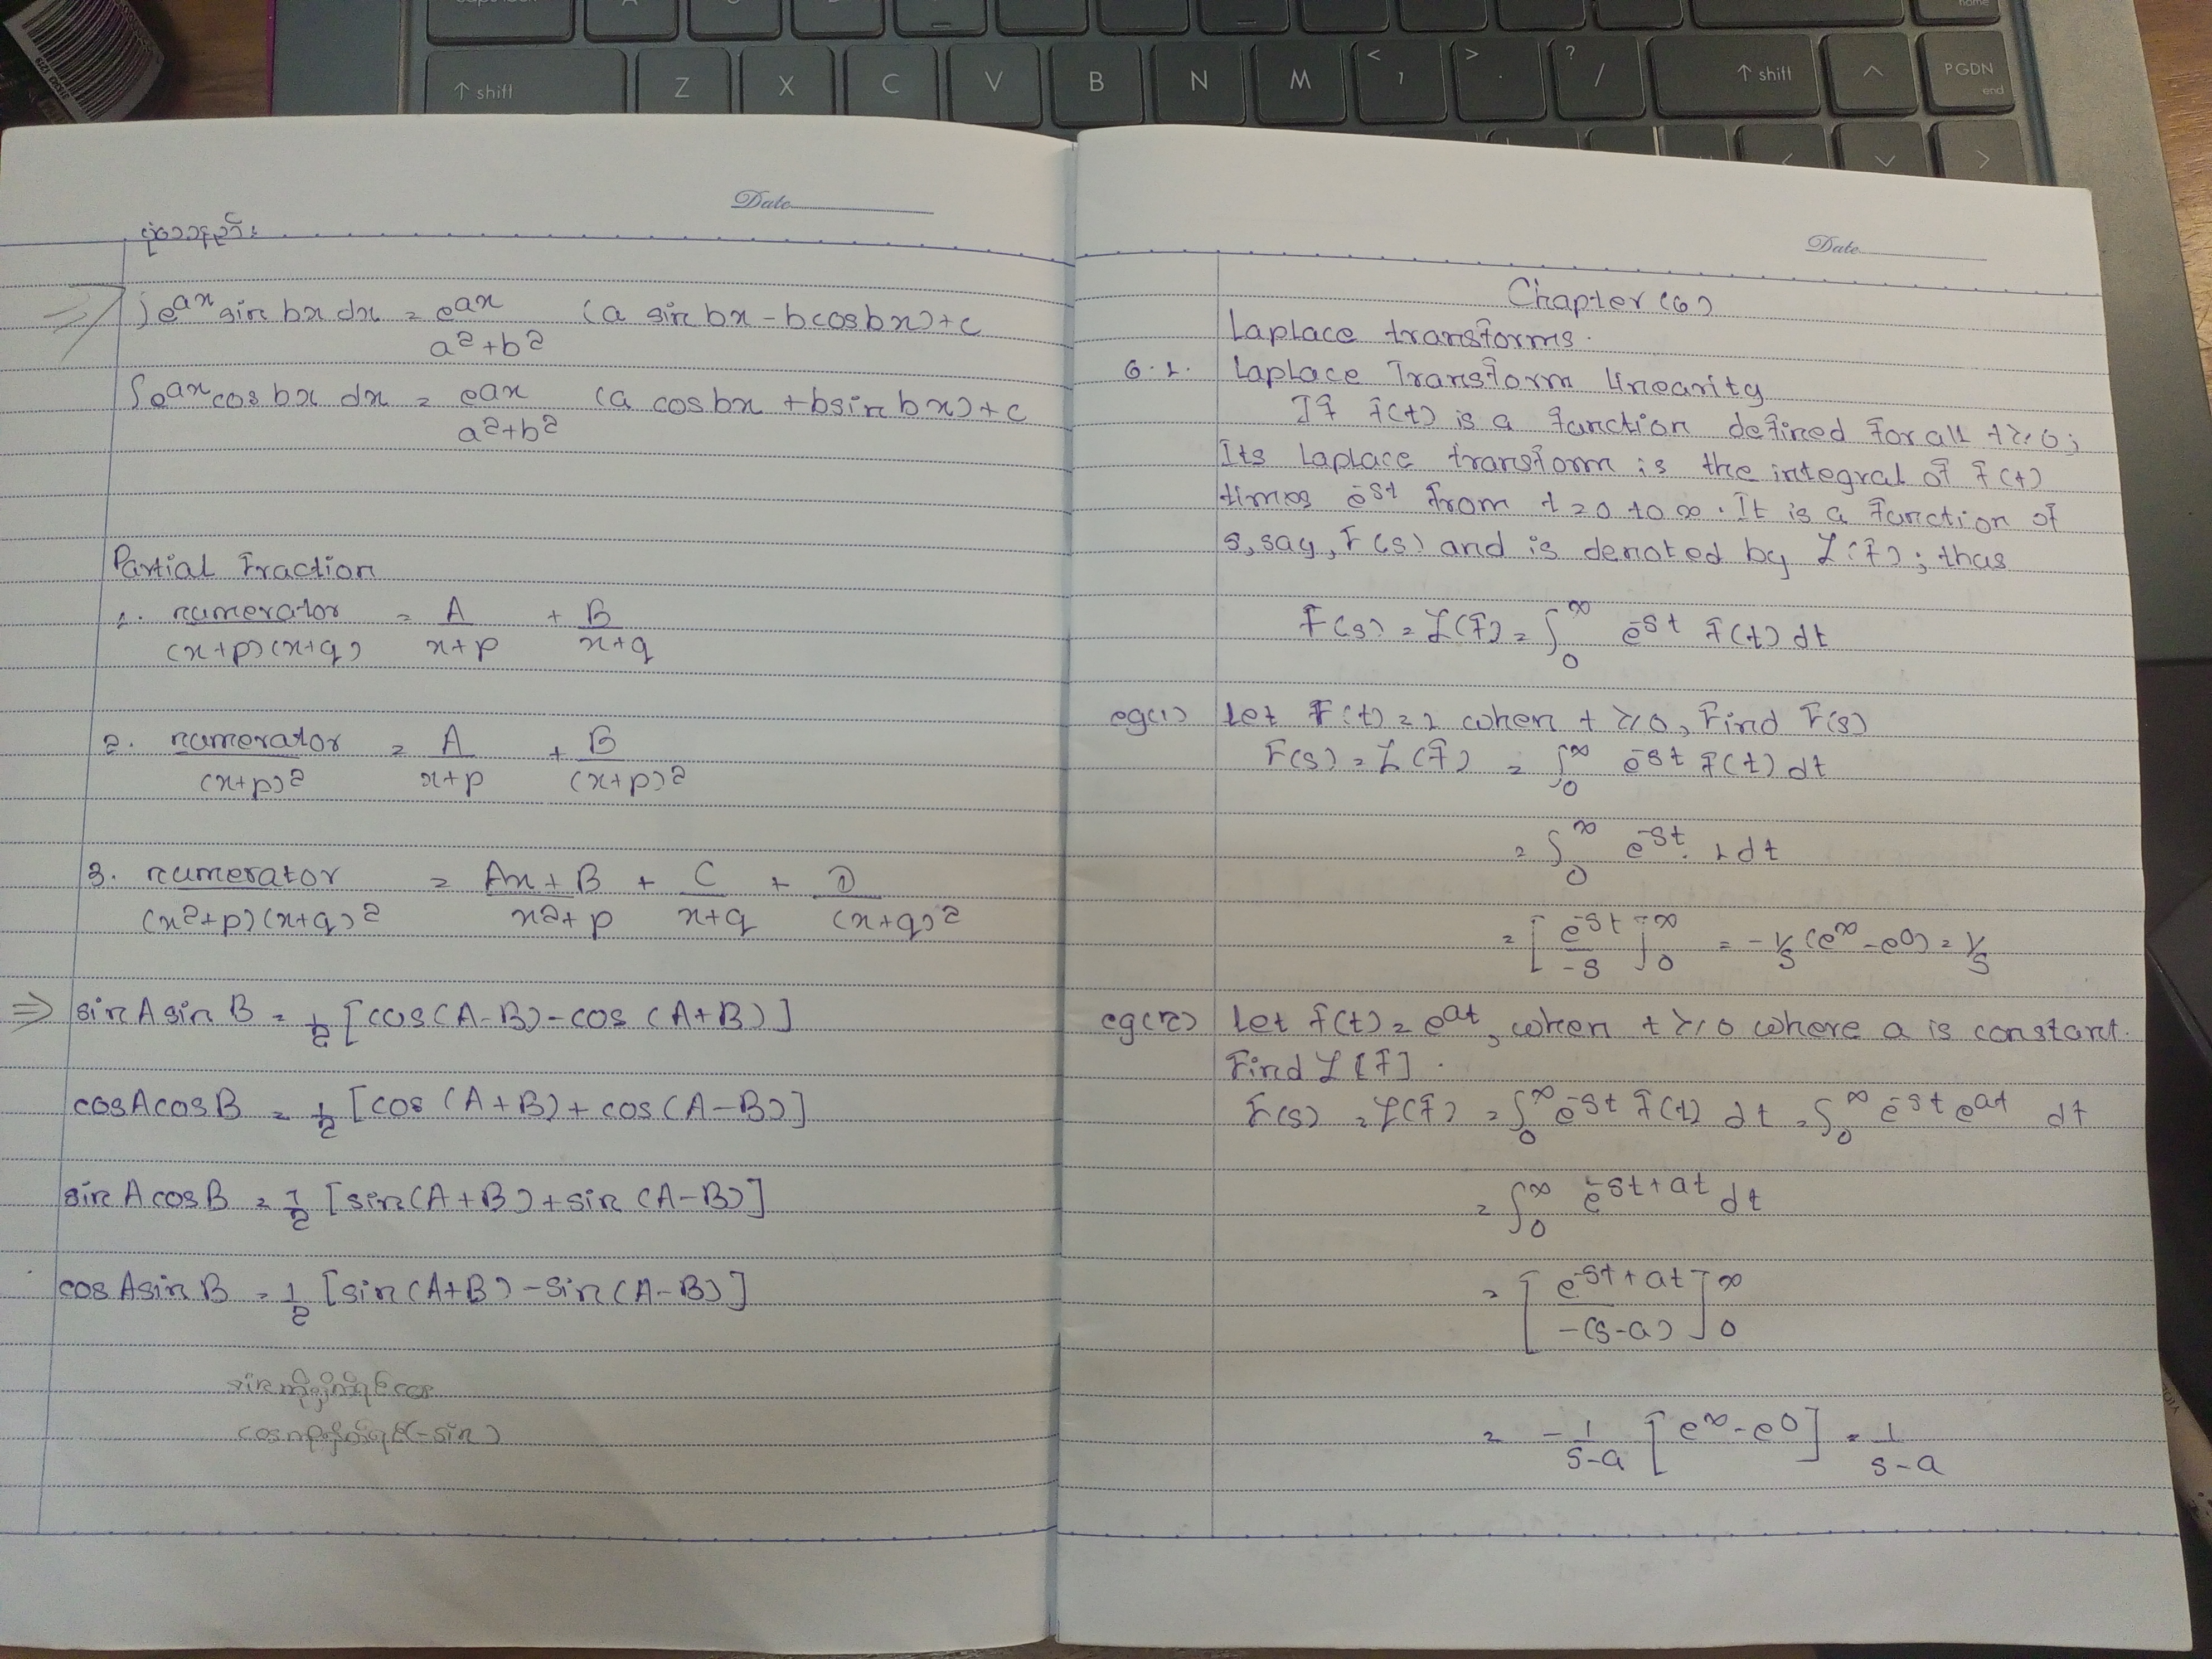 Date
ပုံသေနည်း
∫e^ax sin bx dx = e^ax/(a²+b²) (a sin bx - b cos bx) + c
∫e^ax cos bx dx = e^ax/(a²+b²) (a cos bx + b sin bx) + c
Partial Fraction
1. numerator/((x+p)(x+q)) = A/(x+p) + B/(x+q)
2. numerator/(x+p)² = A/(x+p) + B/(x+p)²
3. numerator/((x²+p)(x+q)²) = (Ax+B)/(x²+p) + C/(x+q) + D/(x+q)²
⇒ sin A sin B = 1/2 [cos(A-B) - cos (A+B)]
cos A cos B = 1/2 [cos (A+B) + cos (A-B)]
sin A cos B = 1/2 [sin (A+B) + sin (A-B)]
cos A sin B = 1/2 [sin (A+B) - sin (A-B)]
Date
Chapter (6)
Laplace transforms.
6.1. Laplace Transform linearity
If f(t) is a function defined for all t ≥ 0;
Its Laplace transform is the integral of f(t)
times e^-st from t=0 to ∞. It is a function of
s, say, F(s) and is denoted by ℒ(f); thus
F(s) = ℒ(f) = ∫₀^∞ e^-st f(t) dt
eg(1) Let F(t) = 1 when t ≥ 0, Find F(s)
F(s) = ℒ(f) = ∫₀^∞ e^-st f(t) dt
= ∫₀^∞ e^-st . 1 dt
= [e^-st/-s]₀^∞ = -1/s (e^∞ - e^0) = 1/s
eg(2) Let f(t) = e^at, when t ≥ 0 where a is constant.
Find ℒ[f].
F(s) = ℒ(f) = ∫₀^∞ e^-st f(t) dt = ∫₀^∞ e^-st e^at dt
= ∫₀^∞ e^-st+at dt
= [e^-st+at/-(s-a)]₀^∞
= -1/(s-a) [e^∞ - e^0] = 1/(s-a)
↑ shift
Z
X
C
V
B
N
M
<
,
>
.
?
/
↑ shift
PGDN
end
home